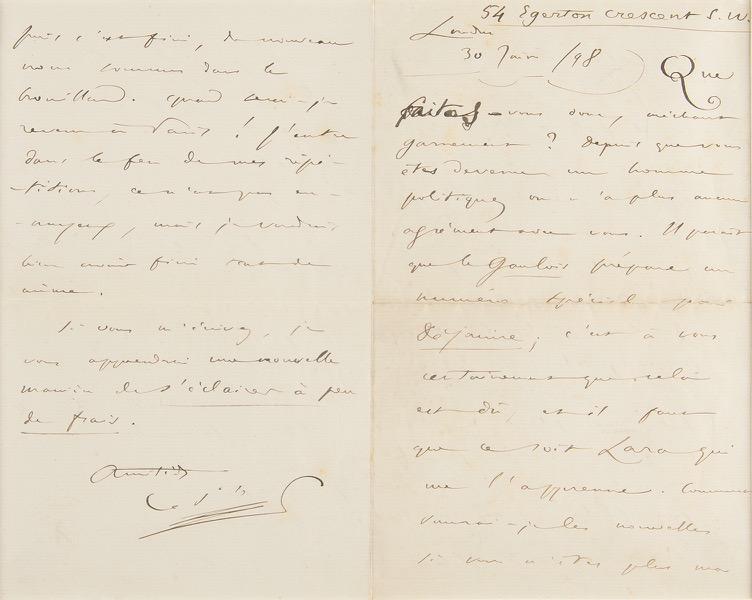 54 Egerton Crescent S.W.
Londres
30 Juin /98
Que
faites-vous donc, méchant
garnement ? Depuis que vous
êtes devenu un homme
politique, on n'a plus aucun
agrément avec vous. Il paraît
que le Gaulois prépare un
numéro spécial pour
Déjanire ; c'est à vous
certainement que cela
est dû et il faut
que ce soit Lara qui
me l'apprenne. Comment
saurai-je les nouvelles
si vous n'êtes plus ma
puis c'est fini, de nouveau
nous sommes dans le
brouillard. Quand serai-je
revenu à Paris ! J'entre
dans le feu de mes répé-
-titions, ce n'est pas en-
-nuyeux, mais je voudrais
bien avoir fini tout de
même.
Si vous m'écrivez, je
vous apprendrai une nouvelle
manière de s'éclairer à peu
de frais.
Amitiés